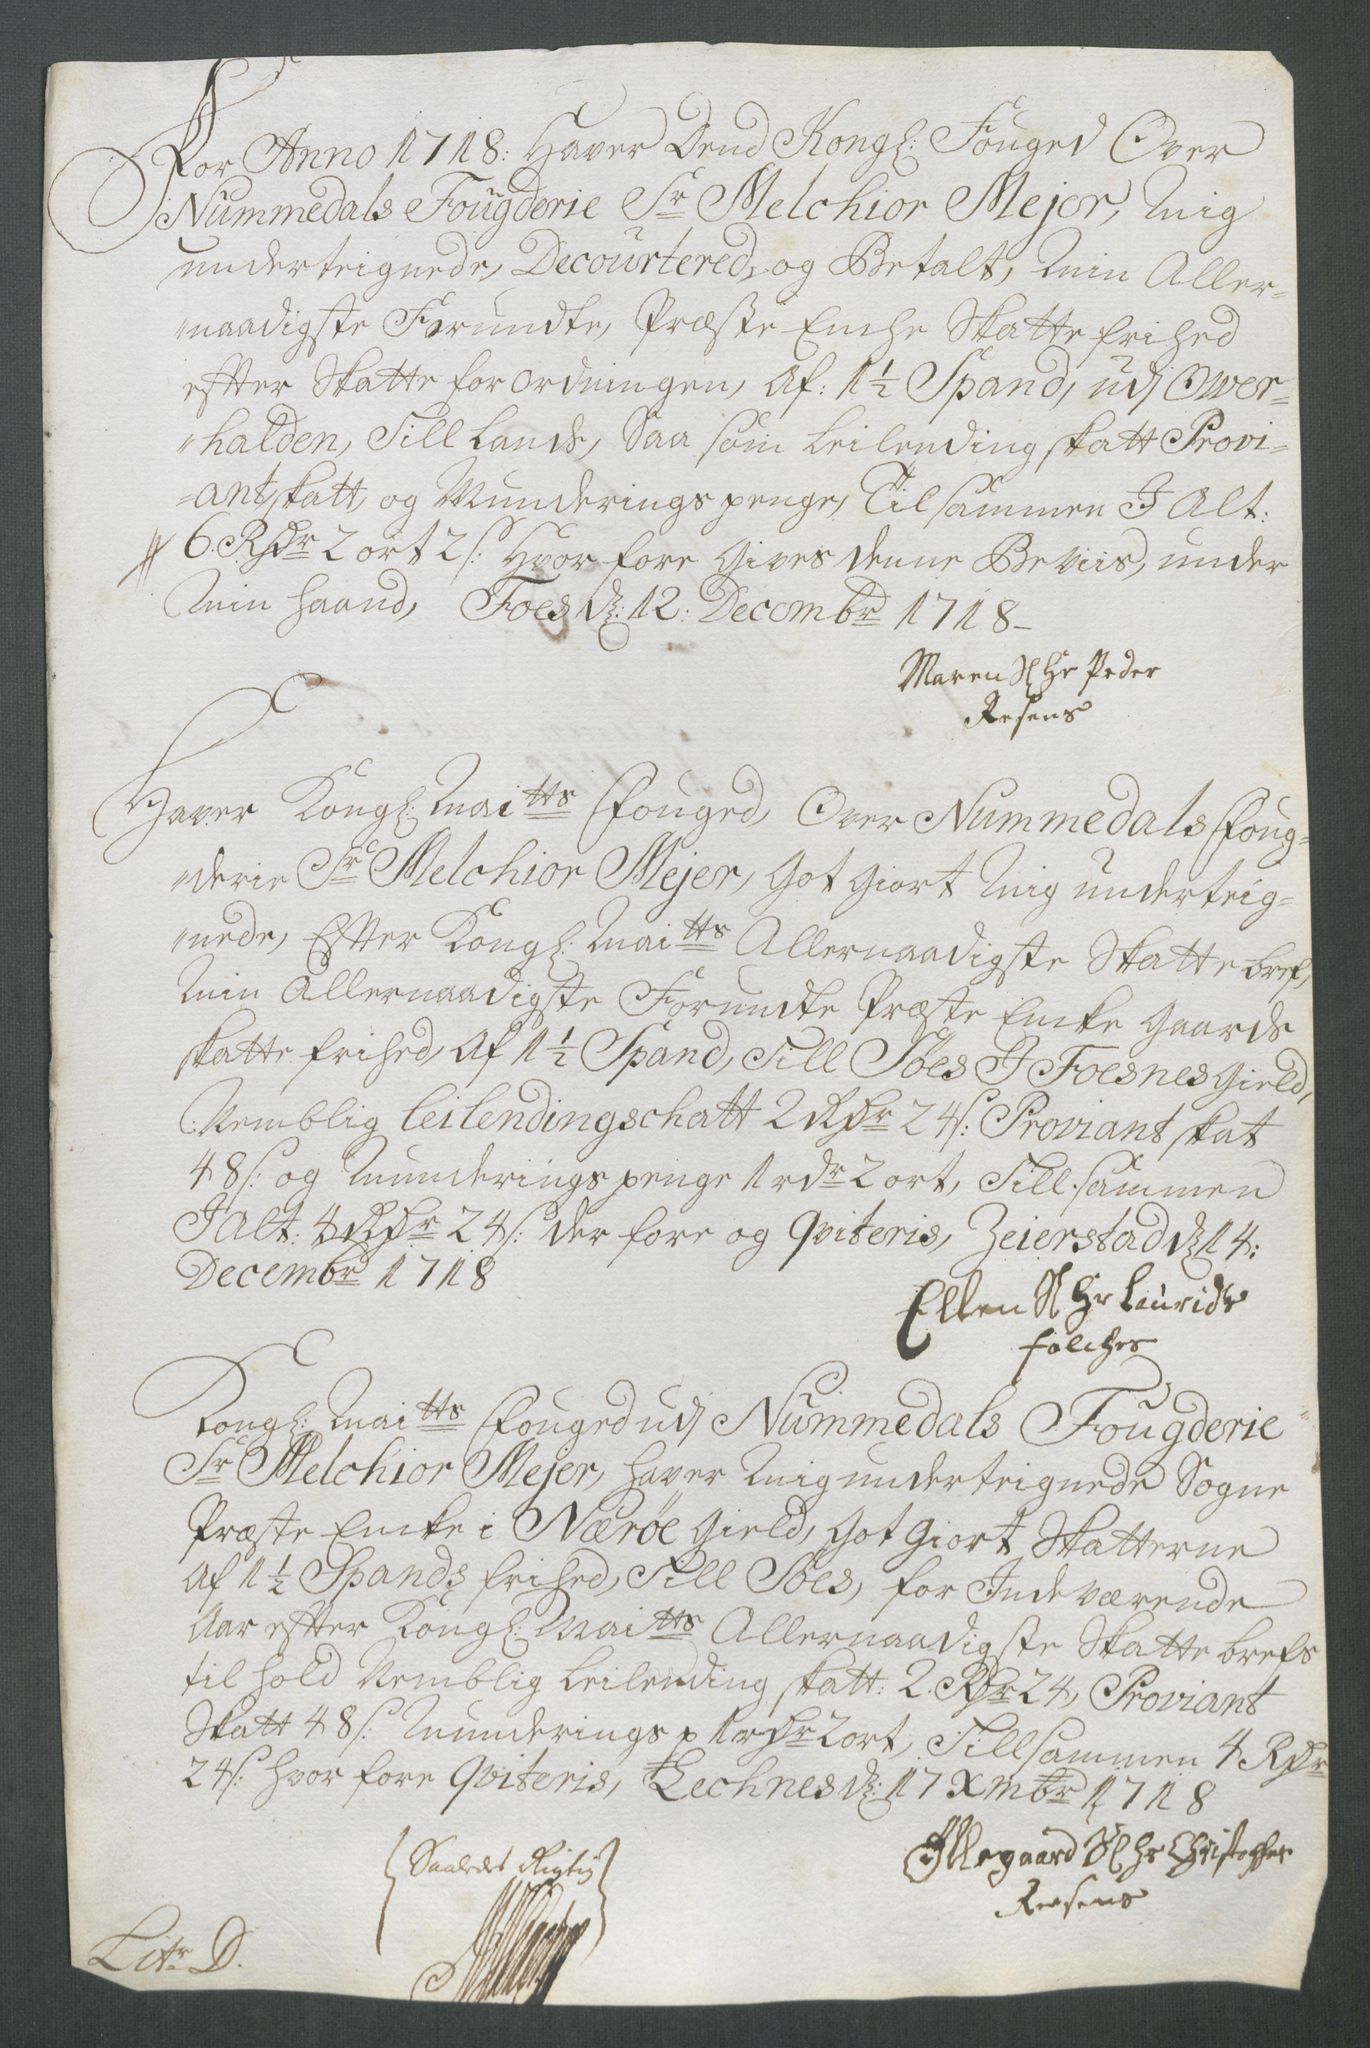 For Anno 1718: Haver Dend Kongl: Fouged Over
Nummedals Fougderie Sr Melchior Mejer, Mig
underteignede, Decourtered, og Betalt, Min Aller-
naadigste Forundte, Præste Enche Skatte frihed
efter Skatte forordningen, Af: 1½ Spand, udj Over-
halden, Till Lands, Saa som Leilending skatt Provi-
antskatt, og Munderings penge, Tilsammen J Alt:
6. Rdr 2 ort 2 s: Hvor fore Gives denne Beviis, under
Min haand, Foes d: 12: Decembr 1718-
Maren Sl Hr Peder
Resens
Haver Kongl: Maitts Fouged, Over Nummedals Foug-
derie Sr Melchior Mejer, Got Giort Mig underteig-
nede, Efter Kongl: Maitts Allernaadigste Skatte bref,
Min Allernaadigste Forundte Præste Encke Gaards
skatte frihed, Af 1½ Spand, Till Söes J Foesnes Gield,
Nemblig Leilendingschatt 2 Rdr 24 s: Proviant skat
48 s: og Munderings penge 1 rdr 2 ort, Till sammen
J Alt: 4 Rdr 24 s: der fore og Qviteris, Zeierstad d: 14:
Decembr 1718
Ellen Sl Hr Laurids
falches
Kongl: Maitts Fouged udj Nummedals Fougderie
Sr Melchior Mejer, haver Mig underteignede Sogne
Præste Encke i Nærøe Gield, Got Giort Skatterne
Af 1½ Spands frihed, Till Söes, for Jndeværende
Aar efter Kongl: Maitts Allernaadigste Skatte brefs
til hold Nemblig Leilending skatt: 2. Rdr 24, Proviant
Skatt 48 s: Munderings p 1 rdr 2 ort, Tillsammen 4 Rdr
24 s: hvor fore Qviteris, Lechnes d: 17 Xmbr 1718
Sl Hr Christopher
Resens
Saaledes Rigtig
Litr D.